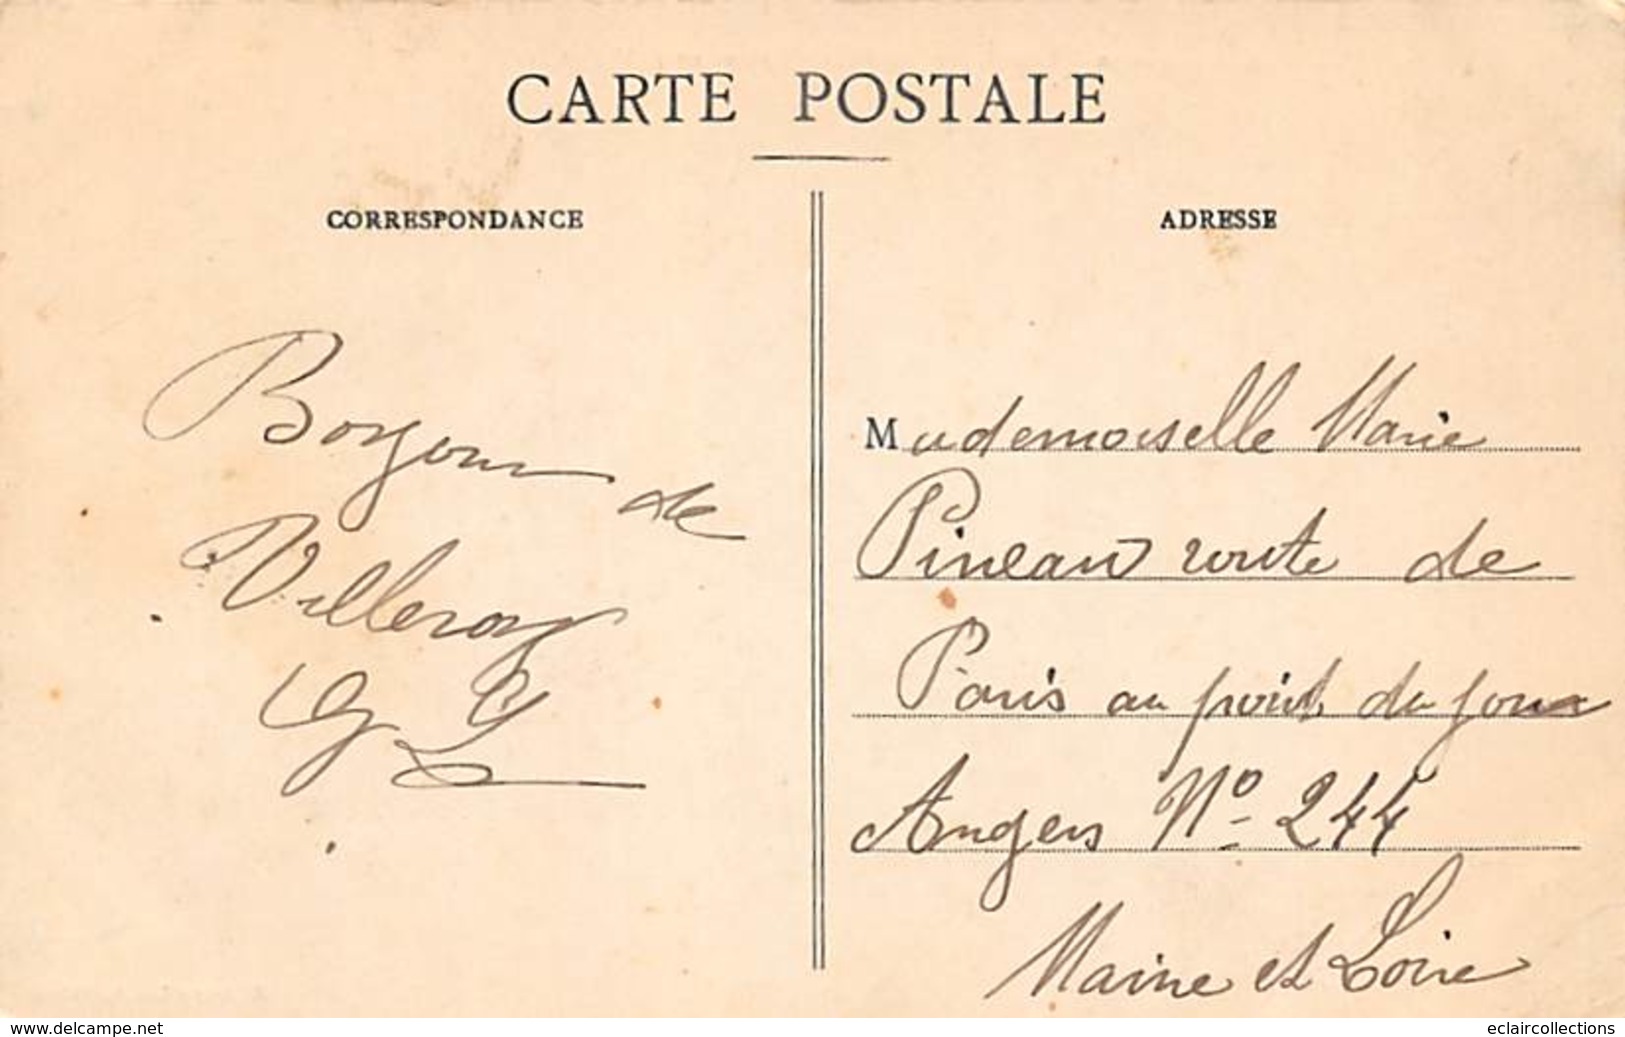 CARTE POSTALE
CORRESPONDANCE
Bonjour de
Villeroy
ADRESSE
Mademoiselle Marie
Pineau route de
Paris au point du jour
Angers No 244
Maine et Loire
www.delcampe.net
eclaircollections